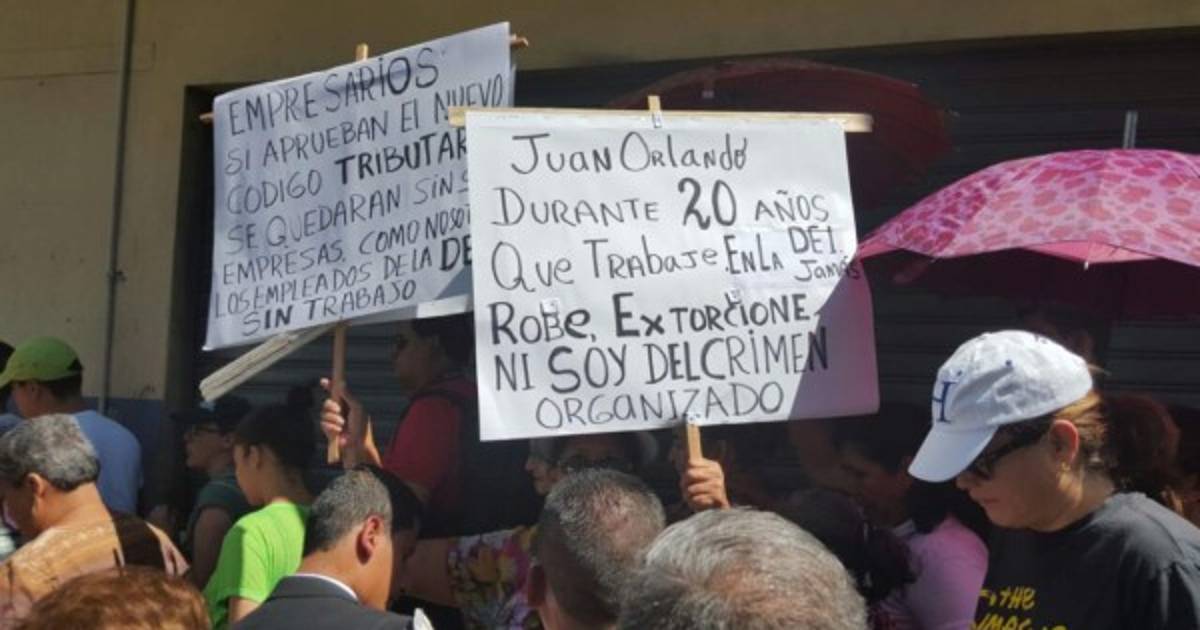 EMPRESARIOS
SI APRUEBAN El NUEVO
CODIGO TRIBUTAR
SE QUEDARAN SIN S
EMPRESAS, COMO NOSOT
LOS EMPLEADOS DE LA DE
SIN TRABAJO
Juan Orlando
DURANTE 20 AÑOS
Que TRabaje EN LA DEI.
Jamás
ROBe, ExTORCIONE
NI SOY DEL CRIMEN
ORGaNIZADO
H
THE